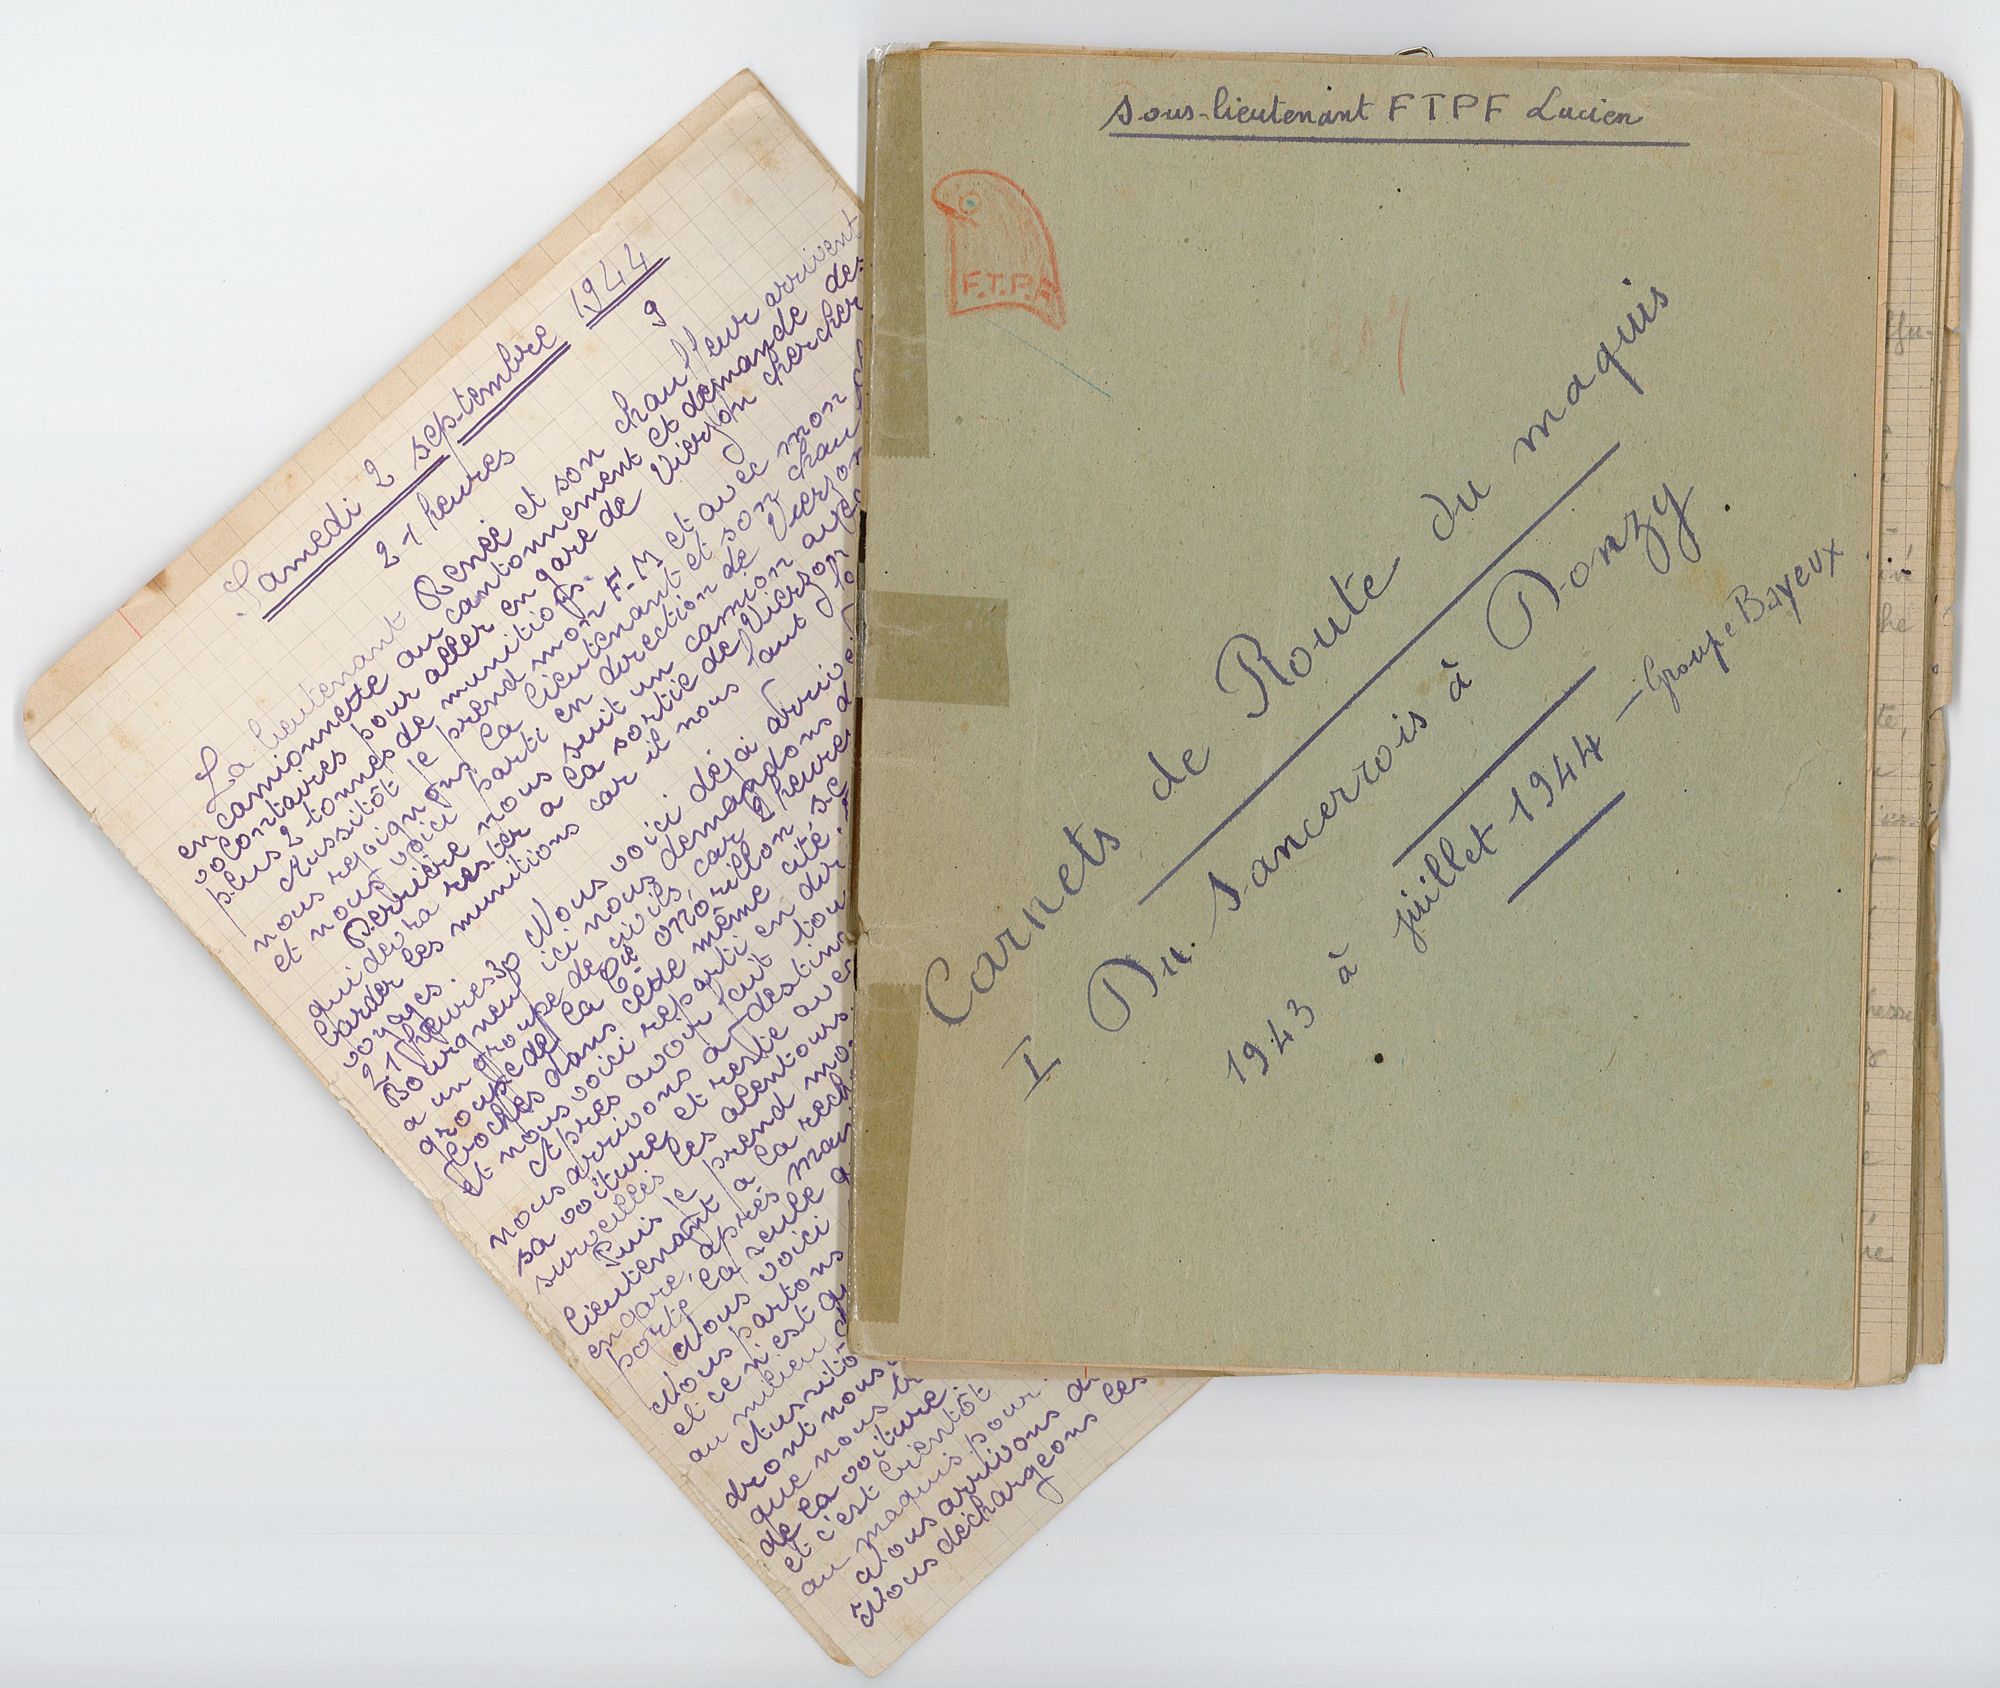 sous-lieutenant FTPF Lucien
F.T.P.F
Carnets de Route du maquis
I Du Sancerrois à Donzy.
1943 à juillet 1944 – Groupe Bayeux
Samedi 2 septembre 1944
9
21 heures
La lieutenant Renée et son chauffeur arrivent
en camionnette au cantonnement et demande des
volontaires pour aller en gare de Vierzon chercher
plus 2 tonnes de munitions.
Aussitôt je prend mon F.M et avec mon
nous rejoignons la lieutenant et son chau
et nous voici parti en direction de Vierzon
Derrière nous suit un camion
qui devra rester à la sortie de Vierzon
garder les munitions car il nous faut
voyages.
21 heures 30 Nous voici déjà arrivé
Bourgneuf ici nous demandons
a un groupe de civils, car
groupe de la
boches dans cette même cité
et nous voici reparti en
Après avoir fait
nous arrivons a destina
sa voiture et reste
surveilles les alentours.
Puis je prend
lieutenant a la rech
en gare, après
porte la seule
Nous voici
Nous partons
et ce n'est
au milieu
Aussitô
dront nous
que nous
de la voiture.
et c'est bientôt
au maquis pour
Nous arrivons
Nous déchargeons les